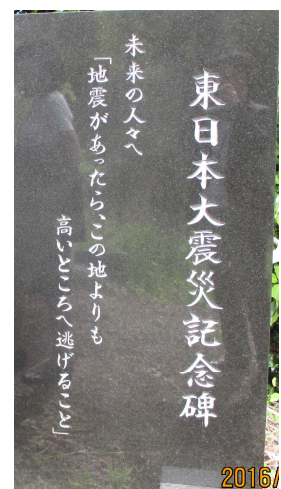 東日本大震災記念碑
未来の人々へ
「地震があったら、この地よりも
高いところへ逃げること」
2016/